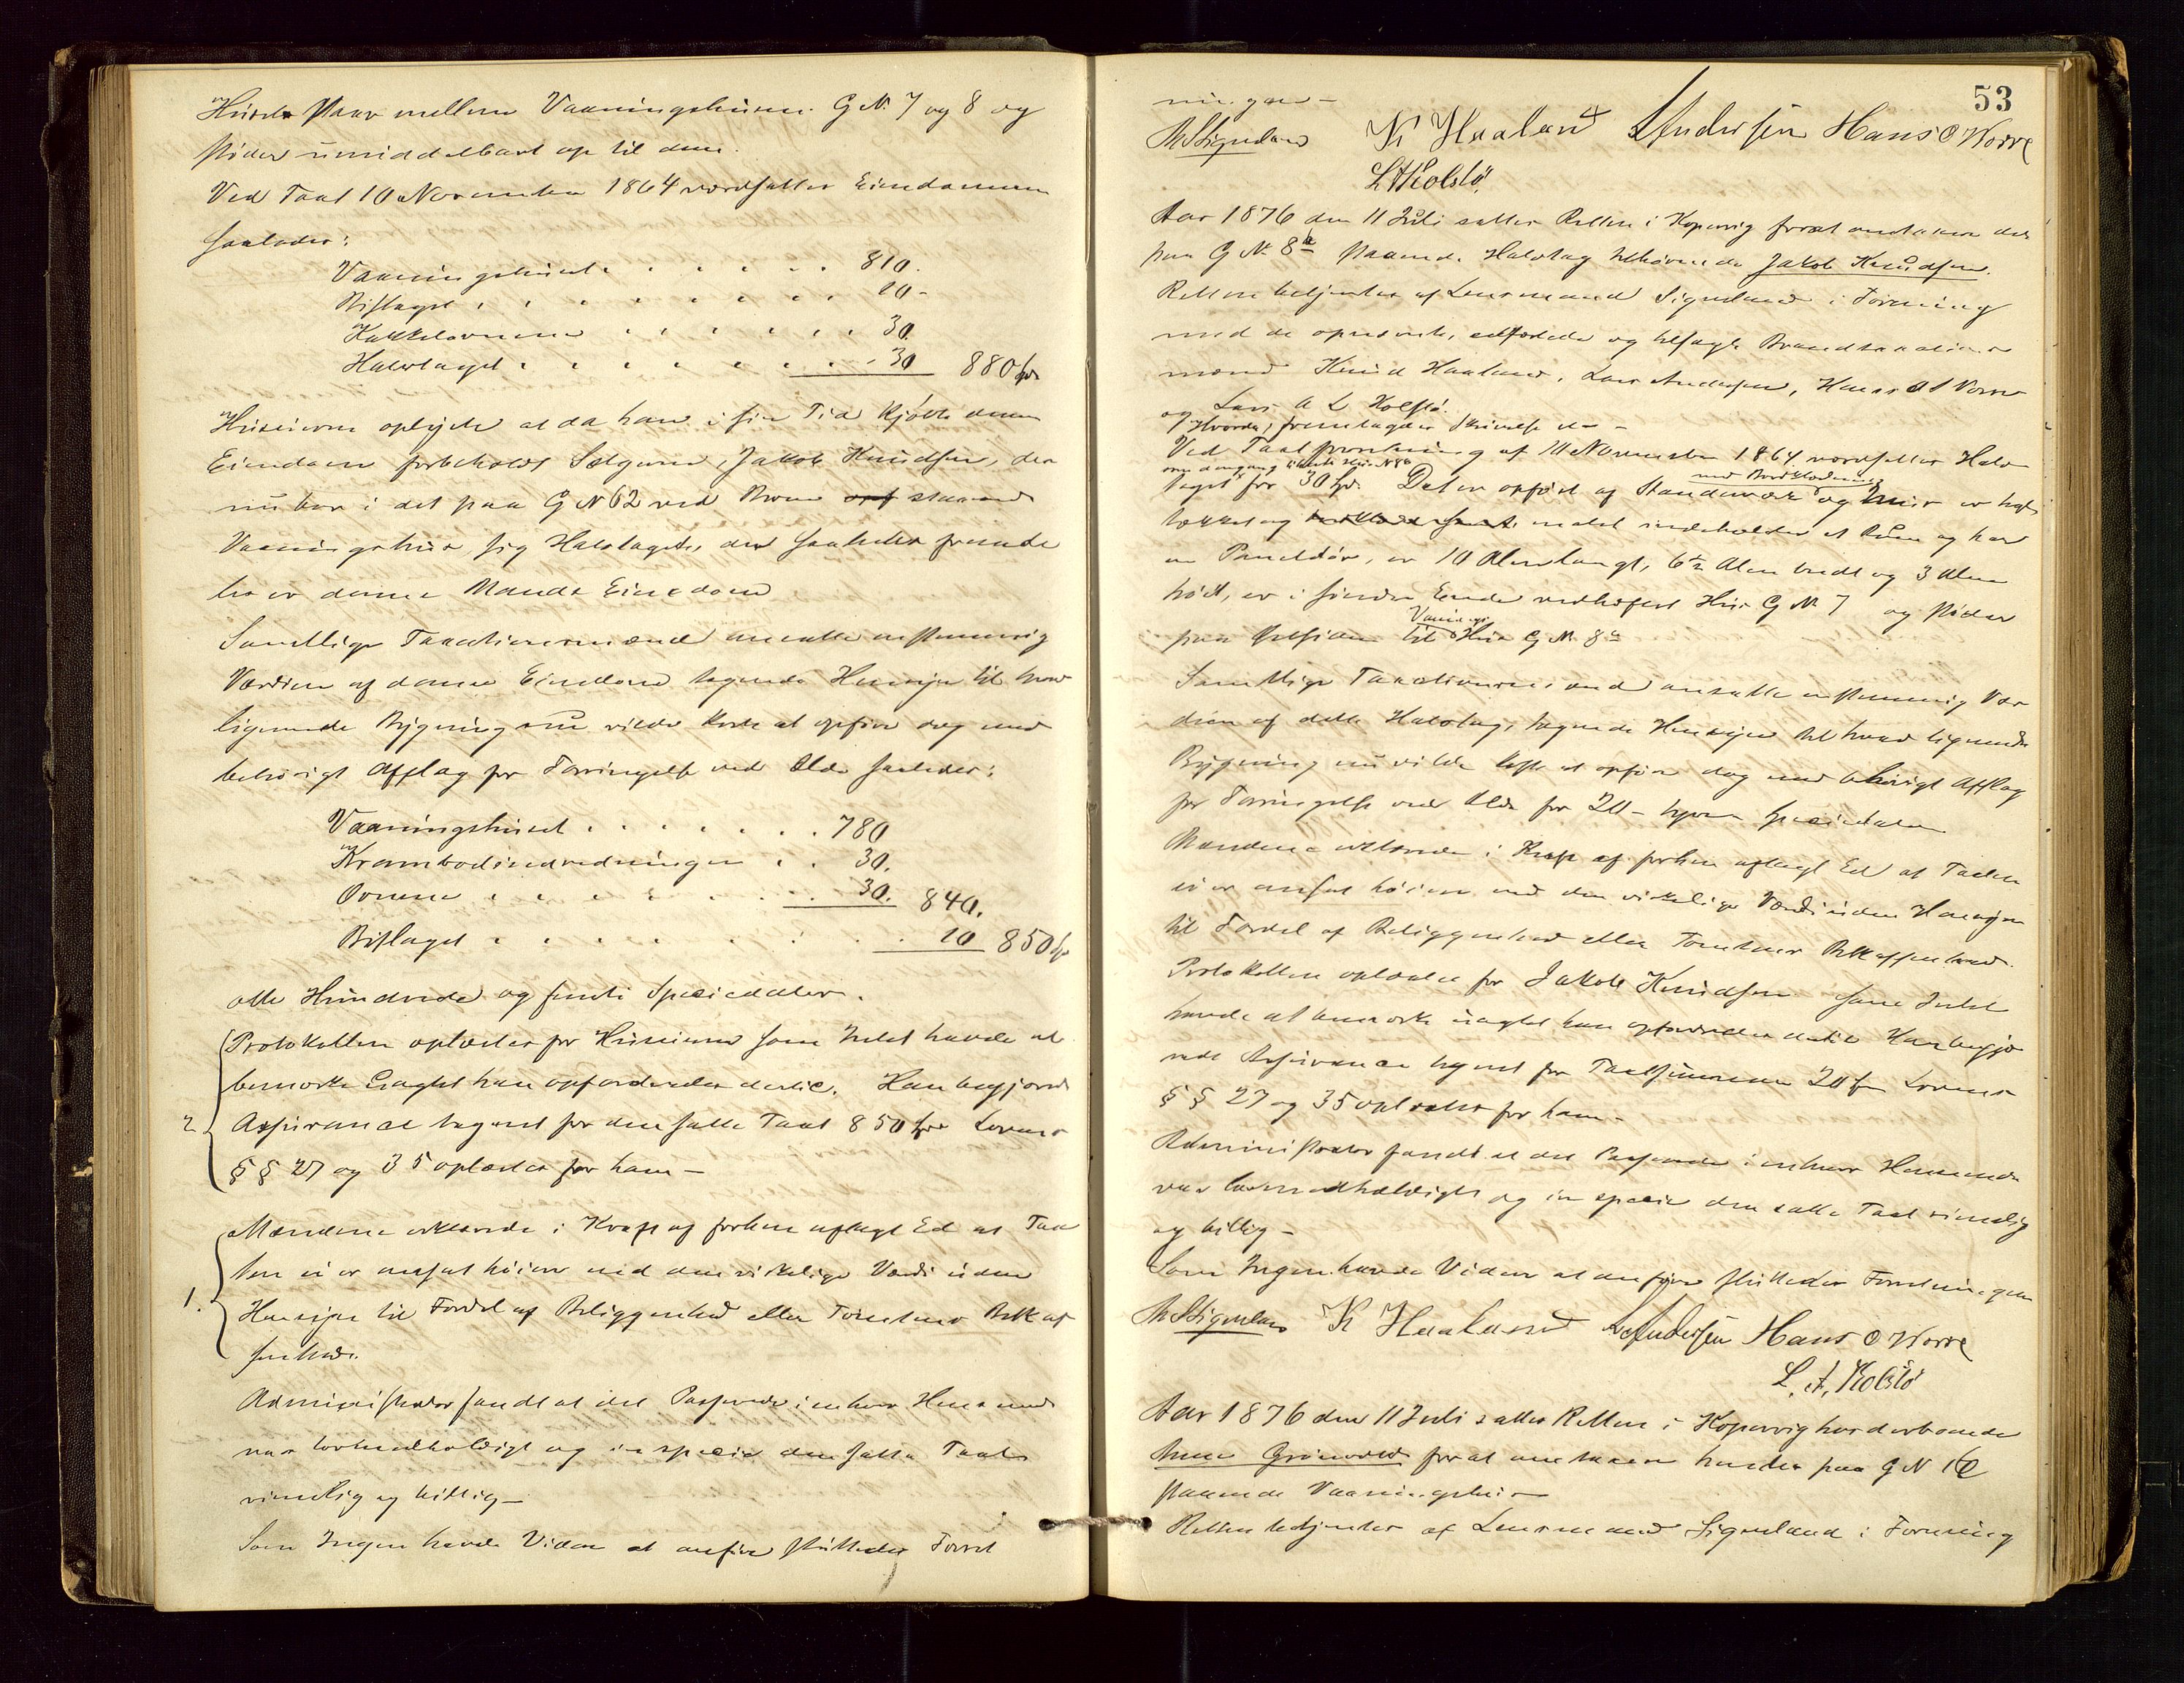 Huset staar mellem Vaaningshusene G No 7 og 8 og
støder umiddelbart op til dem.
Ved Taxt 10 November 1864 værdsattes Eiendommen
saaledes:
Vaaningshuset . . . . . . 810.
Bislaget . . . . . . . . 10-
Kakkelovnene . . . . . . 30.
Halvtaget . . . . . . . 30 880 Spd
Huseieren oplyste at da han i sin Tid kjøbte denne
Eiendom forbeholdt Sælgeren, Jakob Knudsen, der
nu bor i det paa G No 62 ved Broen staaende
Vaaningshus sig Halvtaget, der saaledes fremde
les er denne Mands Eiendom
Samtlige Taxationsmænd ansatte enstemmig
Værdien af denne Eiendom tagende Hensyn til hvad
lignende Bygning nu vilde koste at opføre dog med
behørigt Afslag for Forringelse ved Ælde saaledes:
Vaaningshuset . . . . . . . 780
Krambodindredningen . . 30.
Ovnene . . . . . . . 30. 840.
Bislaget . . . . . . . 10 850 Spd
otte Hundrede og femti Speciedaler.
Protokollen oplæstes for Huseieren som Intet havde at
bemærke uagtet han opfordredes dertil. Han begjærede
2. Assurance tegnet for den satte Taxt 850 Spd Lovens
§ § 27 og 35 oplæstes for ham —
Mændene erklærede i Kraft af forhen aflagt Ed at Tax
ten ei er ansat høiere end den virkelige Værdi uden
1. Hensyn til Fordel af Beliggenhed eller Tomtens Beskaf
fenhed.
Administrator fandt at det Passerede i enhver Henseende
var lovmedholdigt og in specie den satte Taxt
rimelig og billig —
Som Ingen havde Videre at anføre sluttedes Forret
53
ningen —
Signeland K Haaland L Andersen Hans O Vorre
L A Kolstø
Aar 1876 den 11 Juli sattes Retten i Kopervig forat omtaxere det
paa G No 8a staaende Halvtag tilhørende Jakob Knudsen.
Retten betjentes af Lensmand Signeland i Forening
med de opnævnte, edfæstede og tilsagte Brandtaxations
mænd Knud Haaland, Lars Andersen, Hans O Vorre
og Lars A L Kolstø.
Hvorda fremlagdes Skrivelse
Ved Taxtforretning af 10 November 1864 værdsattes Halv
som dengang tilhørte Hus No 8
taget for 30 Spd. Det er opført af Standerværk med Bordklædning og Muur er tegl
tækket og malet indeholder et Rum og har
en Paneldør, er 10 Alen langt, 6½ Alen bredt og 3 Alen
høit, er i søndre Ende vedhæftet Hus G No 7 og støder
paa Østsiden til Vanings Hus G No 8a
Samtlige Taxationsmænd ansatte enstemmig Vær
dien af dette Halvtag, tagende Hensyn til hvad lignende
Bygning nu vilde koste at opføre dog med behørigt Afslag
for Forringelse ved Ælde for 20 – tyve Speciedaler
Mændene erklærede i Kraft af forhen aflagt Ed at Taxten
ei er ansat høiere end den virkelige Værdi uden Hensyn
til Fordel af Beliggenhed eller Tomtens Beskaffenhed.
Protokollen oplæstes for Jakob Knudsen som Intet
havde at bemærke uagtet han opfordredes dertil Han begjæ
rede Assurance tegnet for Taxtsummen 20 Spd Lovens
§ § 27 og 35 oplæstes for ham —
Administrator fandt at det Passerede i enhver Henseende
var lovmedholdigt og in specie den satte Taxt rimelig
og billig —
Som Ingen havde Videre at anføre sluttedes Forretningen
Signeland K Haaland L Andersen Hans O Vorre
L. A. Kolstø
Aar 1876 den 11 Juli sattes Retten i Kopervig hos
Grønvold for at omtaxere hendes paa G N 16
staaende Vaaningshus
Retten betjentes af Lensmand Signeland i Forening